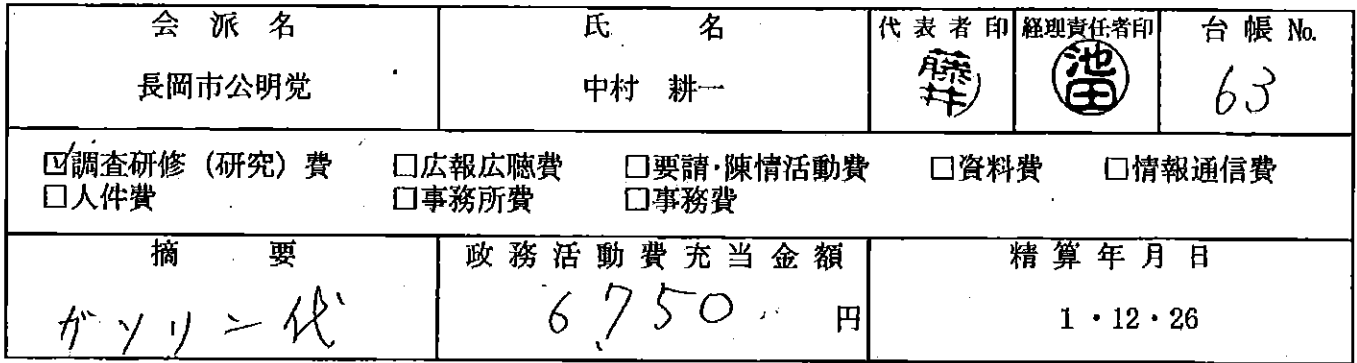 会派名 氏名 代表者印 経理責任者印 台帳No.
長岡市公明党 中村 耕一 藤井 池田 63
☑調査研修（研究）費 □広報広聴費 □要請・陳情活動費 □資料費 □情報通信費
□人件費 □事務所費 □事務費
摘要 政務活動費充当金額 精算年月日
ガソリン代 6,750 円 1・12・26